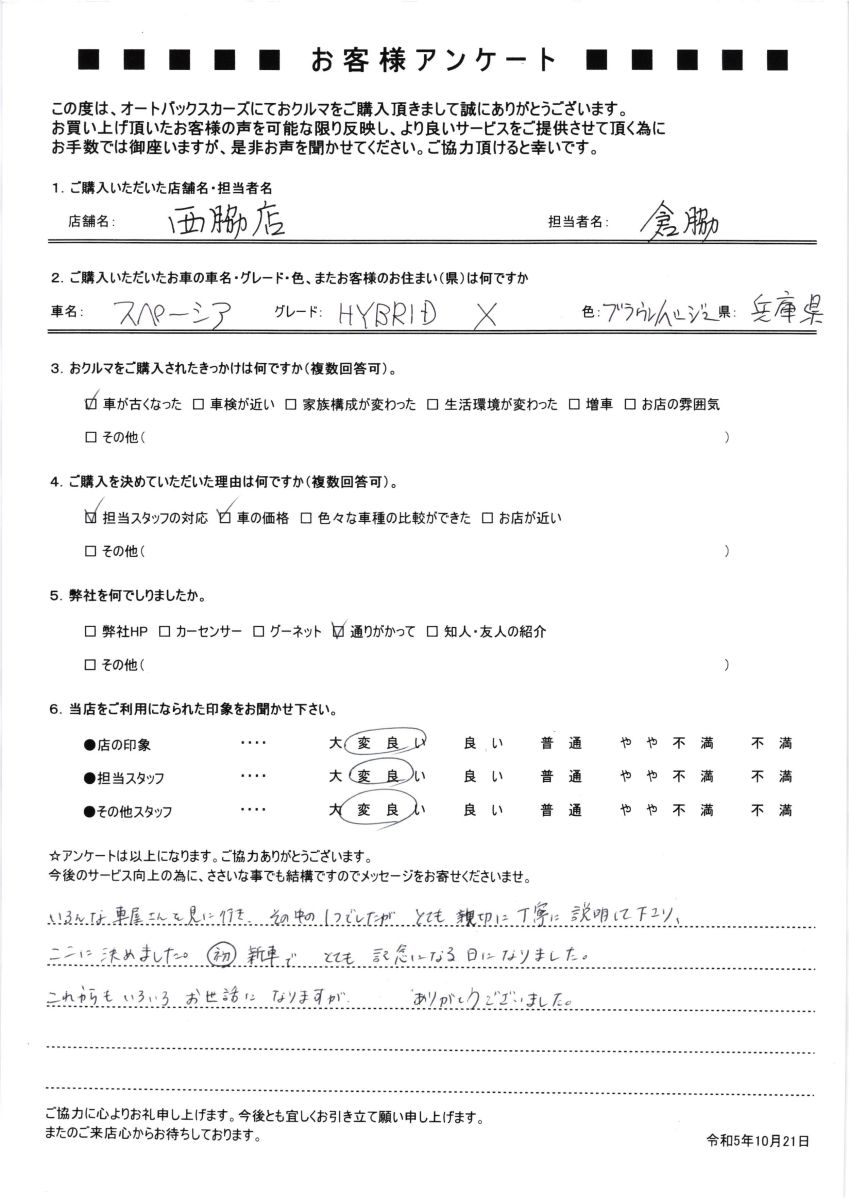 ■ ■ ■ ■ ■ お客様アンケート ■ ■ ■ ■ ■
この度は、オートバックスカーズにておクルマをご購入頂きまして誠にありがとうございます。
お買い上げ頂いたお客様の声を可能な限り反映し、より良いサービスをご提供させて頂く為に
お手数では御座いますが、是非お声を聞かせてください。ご協力頂けると幸いです。
1. ご購入いただいた店舗名・担当者名
店舗名: 西脇店 担当者名: 倉脇
2. ご購入いただいたお車の車名・グレード・色、またお客様のお住まい(県)は何ですか
車名: スペーシア グレード: HYBRID X 色: 県: 兵庫県
3. おクルマをご購入されたきっかけは何ですか(複数回答可)。
☑ 車が古くなった □ 車検が近い □ 家族構成が変わった □ 生活環境が変わった □ 増車 □ お店の雰囲気
□ その他( )
4. ご購入を決めていただいた理由は何ですか(複数回答可)。
☑ 担当スタッフの対応 ☑ 車の価格 □ 色々な車種の比較ができた □ お店が近い
□ その他( )
5. 弊社を何でしりましたか。
□ 弊社HP □ カーセンサー □ グーネット ☑ 通りがかって □ 知人・友人の紹介
□ その他( )
6. 当店をご利用になられた印象をお聞かせ下さい。
●店の印象 ‥‥ 大変良い 良い 普通 やや不満 不満
●担当スタッフ ‥‥ 大変良い 良い 普通 やや不満 不満
●その他スタッフ ‥‥ 大変良い 良い 普通 やや不満 不満
☆アンケートは以上になります。ご協力ありがとうございます。
今後のサービス向上の為に、ささいな事でも結構ですのでメッセージをお寄せくださいませ。
いろんな車屋さんを見に行き、その中の1つでしたが とても 親切に 丁寧に 説明して下さり、
ここに決めました。初 新車で とても 記念になる日になりました。
これからもいろいろ お世話に なりますが、 ありがとうございました。
ご協力に心よりお礼申し上げます。今後とも宜しくお引き立て願い申し上げます。
またのご来店心からお待ちしております。
令和5年10月21日